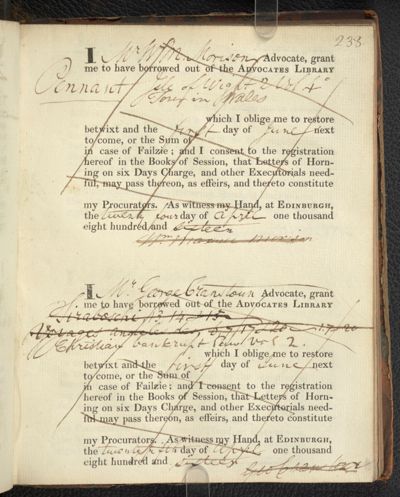 233
I Mr Wm. Morison Advocate, grant
me to have borrowed out of the ADVOCATES LIBRARY
Pennant Isle of Wight 2 Vol 4o
Tour in Wales
which I oblige me to restore
betwixt and the first day of June next
to come, or the Sum of
in case of Failzie; and I consent to the registration
hereof in the Books of Session, that Letters of Horn-
ing on six Days Charge, and other Executorials need-
ful, may pass thereon, as effeirs, and thereto constitute
my Procurators. As witness my Hand, at EDINBURGH,
the twenty four day of April one thousand
eight hundred and sixteen
Morison
I Mr George Cranstoun Advocate, grant
me to have borrowed out of the ADVOCATES LIBRARY
Christian bankrupt Law vol 2.
which I oblige me to restore
betwixt and the first day of June next
to come, or the Sum of
in case of Failzie; and I consent to the registration
hereof in the Books of Session, that Letters of Horn-
ing on six Days Charge, and other Executorials need-
ful may pass thereon, as effeirs, and thereto constitute
my Procurators. As witness my Hand, at EDINBURGH,
the day of April one thousand
eight hundred and sixteen
Geo Cranstoun